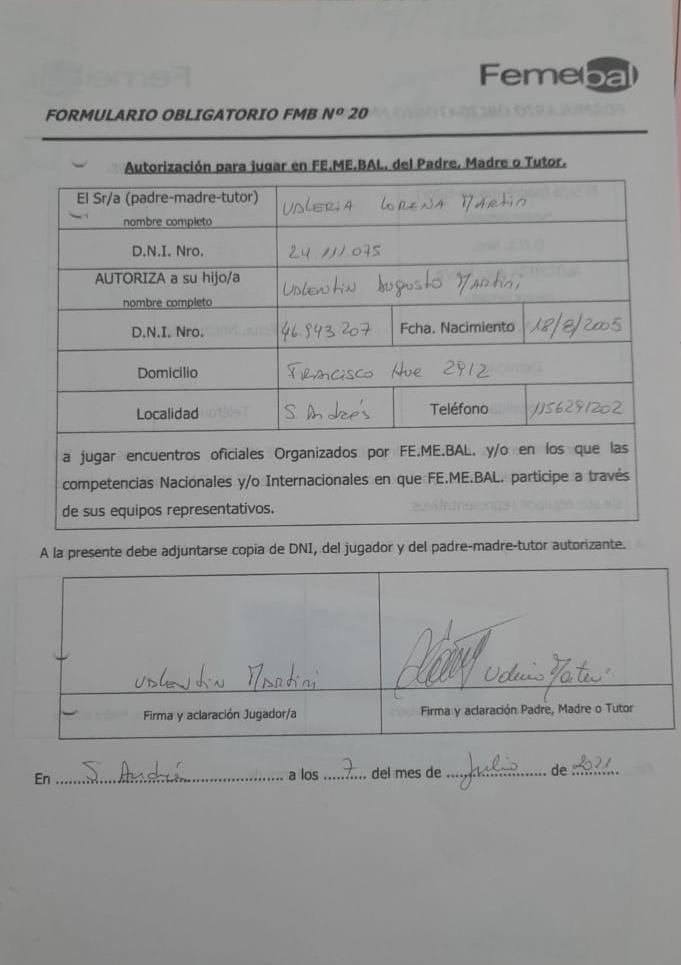 Femebal
FORMULARIO OBLIGATORIO FMB Nº 20
Autorización para jugar en FE.ME.BAL. del Padre, Madre o Tutor.
El Sr/a (padre-madre-tutor) VALERIA LORENA MARtin
nombre completo
D.N.I. Nro. 24 111 075
AUTORIZA a su hijo/a VALENtiN Augusto MARtini
nombre completo
D.N.I. Nro. 46.943 207 Fcha. Nacimiento 18/8/2005
Domicilio FRANCISCO Hue 2912
Localidad S. Andrés Teléfono 1156291202
a jugar encuentros oficiales Organizados por FE.ME.BAL. y/o en los que las
competencias Nacionales y/o Internacionales en que FE.ME.BAL. participe a través
de sus equipos representativos.
A la presente debe adjuntarse copia de DNI, del jugador y del padre-madre-tutor autorizante.
VALENtiN MARtini
Firma y aclaración Jugador/a Firma y aclaración Padre, Madre o Tutor
En S. Andrés a los 7 del mes de Julio de 2021